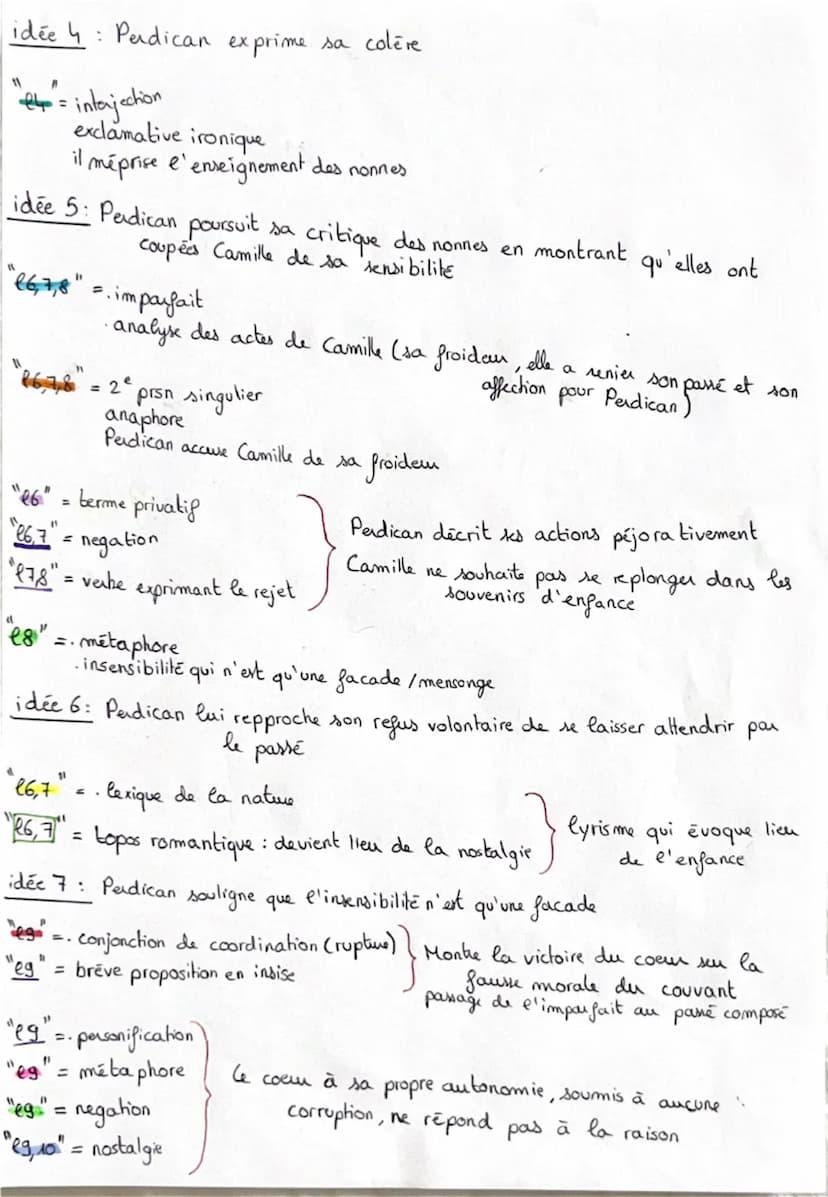 idée 4 : Perdican exprime sa colère
"l4" = interjection
exclamative ironique
il méprise l'enseignement des nonnes
idée 5 : Perdican poursuit sa critique des nonnes en montrant qu'elles ont
coupées Camille de sa sensibilité
"l6,7,8" = . imparfait
. analyse des actes de Camille (sa froideur, elle a renier son passé et son
affection pour Perdican)
"l6,7,8" = 2e prsn singulier
anaphore
Perdican accuse Camille de sa froideur
"l6" = terme privatif
"l6,7" = negation
"l7,8" = verbe exprimant le rejet
Perdican décrit ses actions péjorativement
Camille ne souhaite pas se replonger dans les
souvenirs d'enfance
"l8" = . métaphore
. insensibilité qui n'est qu'une facade / mensonge
idée 6 : Perdican lui repproche son refus volontaire de se laisser attendrir par
le passé
"l6,7" = . lexique de la nature
"l6,7" = topos romantique : devient lieu de la nostalgie
lyrisme qui évoque lieu
de l'enfance
idée 7 : Perdican souligne que l'insensibilité n'est qu'une facade
"l9" = . conjonction de coordination (rupture)
"l9" = brève proposition en insise
Montre la victoire du coeur sur la
fausse morale du couvant
passage de l'imparfait au passé composé
"l9" = . personification
"l9" = métaphore
"l9" = negation
"l9,10" = nostalgie
Le coeur à sa propre autonomie, soumis à aucune
corruption, ne répond pas à la raison